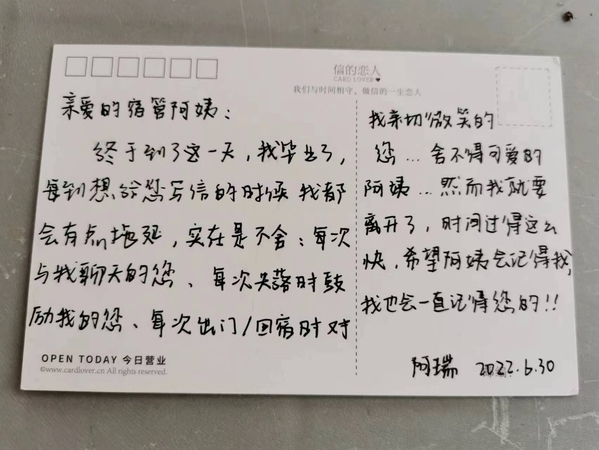 信的恋人
CARD LOVER
我们与时间相守，做信的一生恋人
亲爱的宿管阿姨：
终于到了这一天，我毕业了，
每到想给您写信的时候我都
会有点拖延，实在是不舍：每次
与我聊天的您、每次失落时鼓
励我的您、每次出门/回宿时对
我亲切微笑的
您…舍不得可爱的
阿姨…然而我就要
离开了，时间过得这么
快，希望阿姨会记得我，
我也会一直记得您的！！
阿瑞 2022.6.30
OPEN TODAY 今日营业
©www.cardlover.cn All rights reserved.